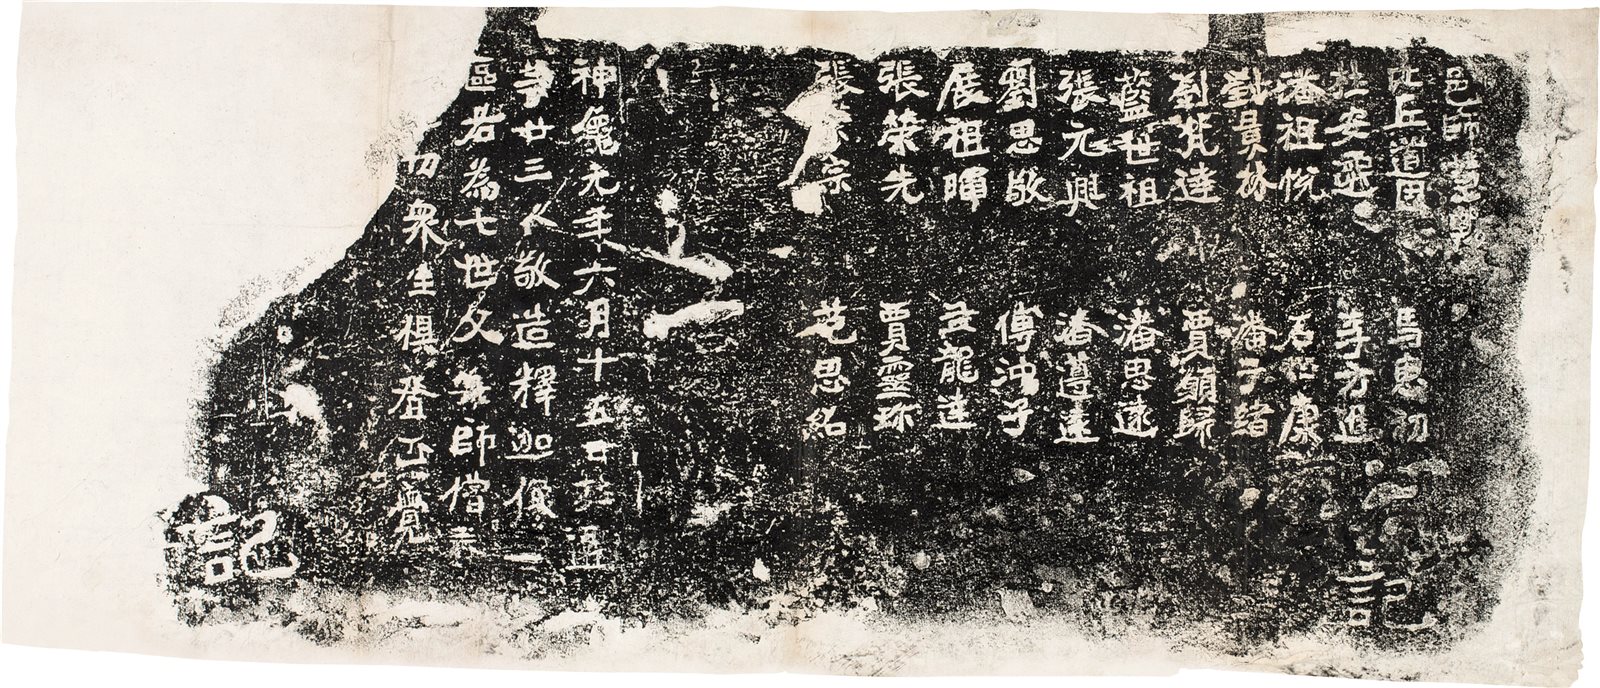 邑師慧
比丘道因 馮惠初
杜安遷 李方進
潘祖悅 石 康
劉員林 潘子緒
劉梵達 賈願歸
藍世祖 潘思遠
張元興 潘遵遠
劉思敬 傅沖子
展祖暉 孟龍達
張榮先 賈靈珎
張 宗 范思紹
神龜元年六月十五日杜遷
等廿三人敬造釋迦像一
區若為七世父母師僧
切衆生俱登正覺
記
記